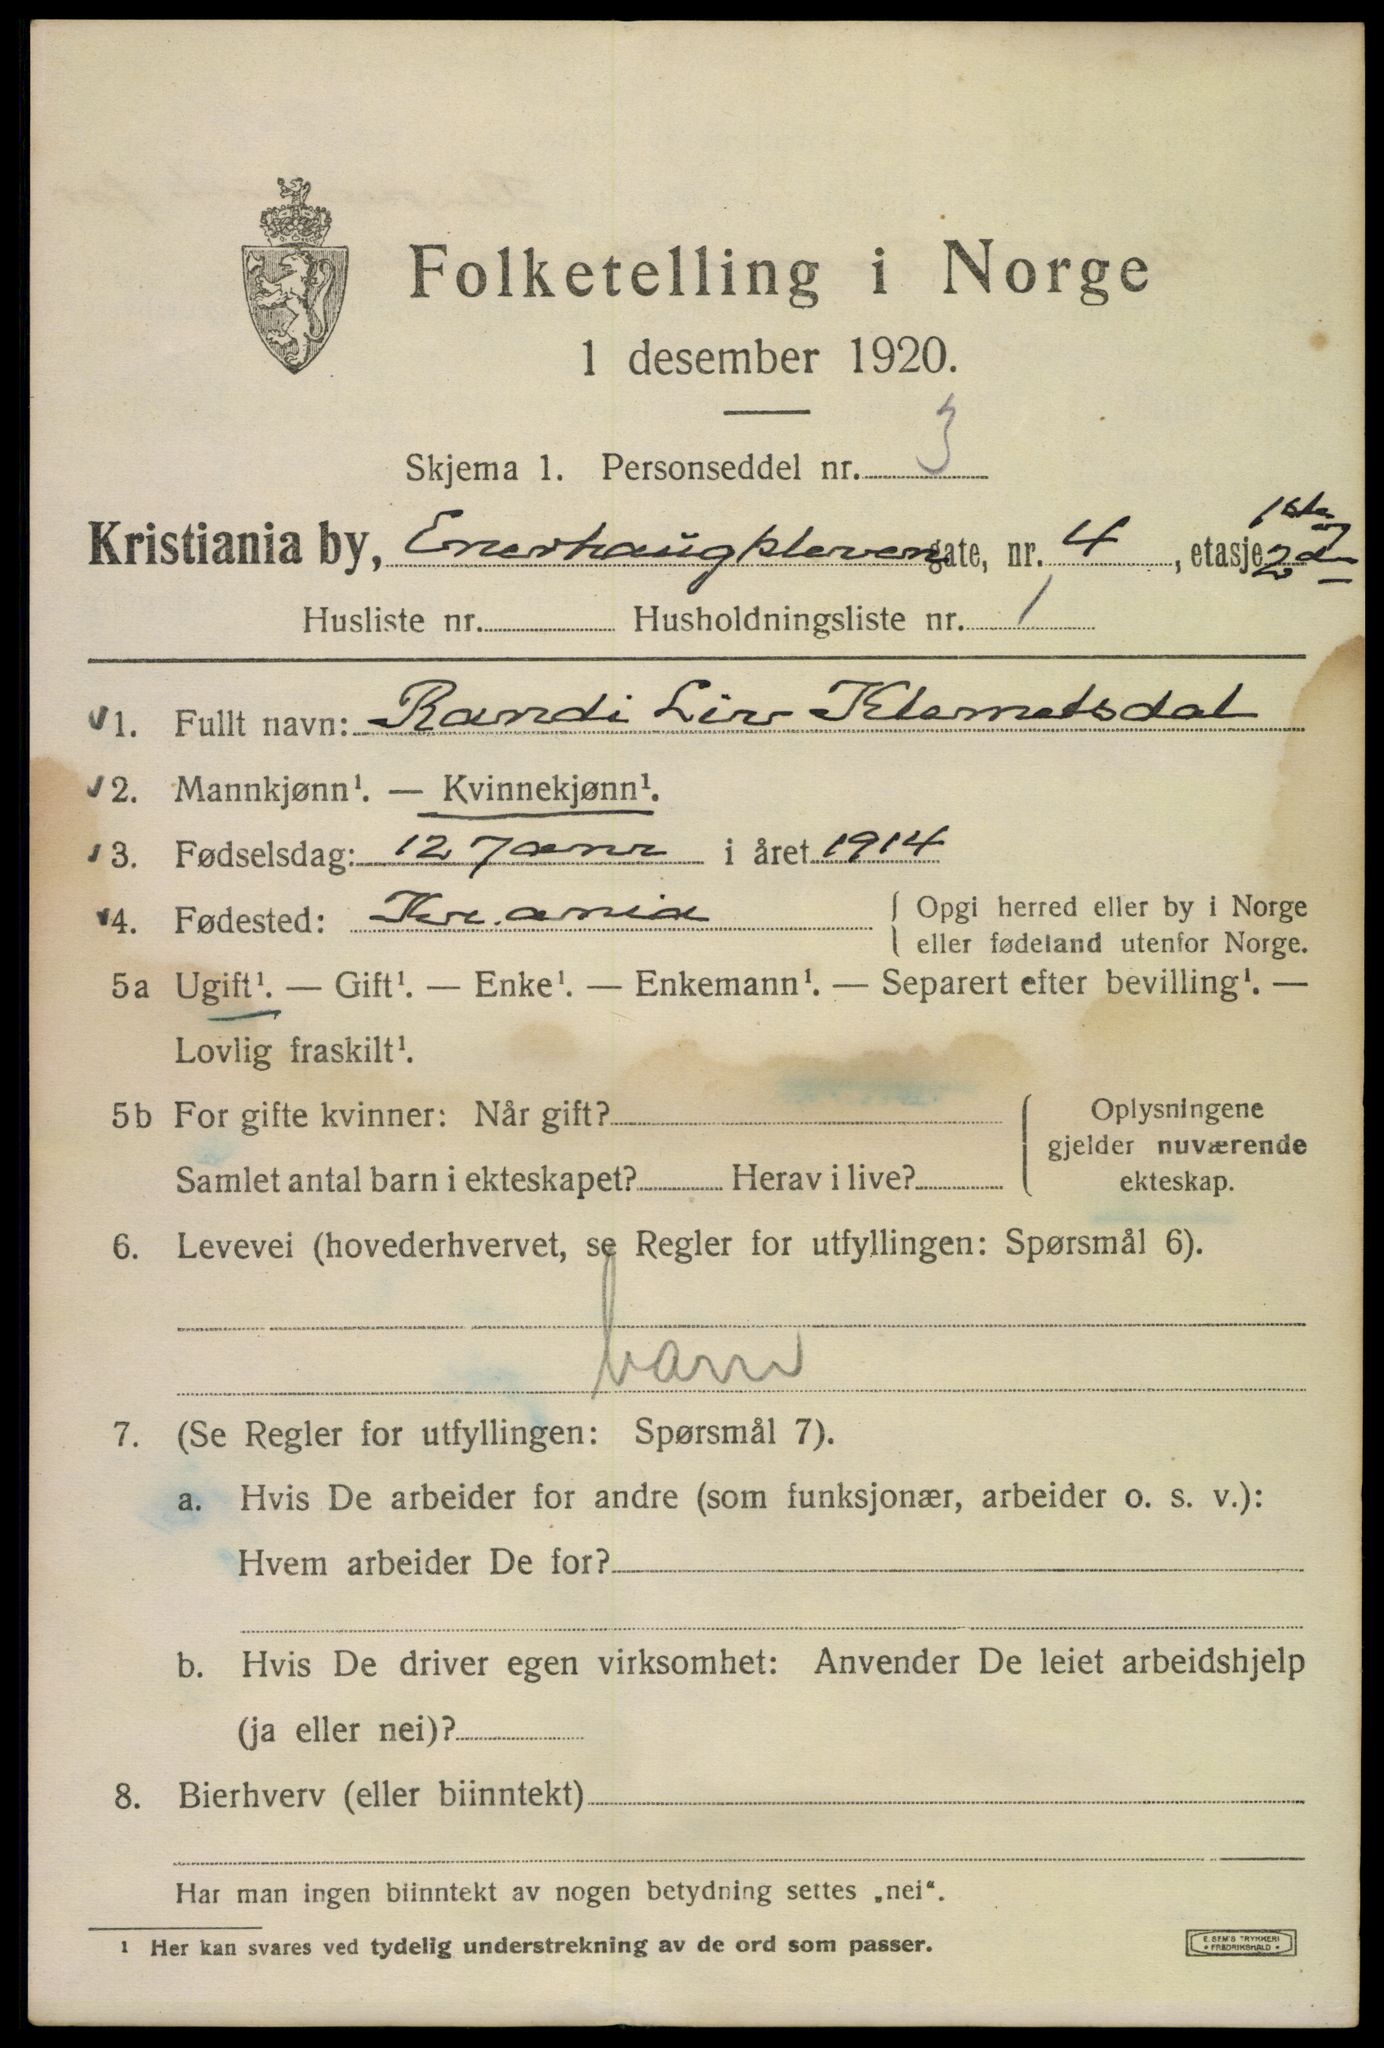 Folketelling i Norge
1 desember 1920.
Skjema 1. Personseddel nr. 3
Kristiania by, Enerhaugkleven gate, nr. 4, etasje 1ste og 2den
Husliste nr. Husholdningsliste nr. 1
1. Fullt navn: Randi Liv Klemetsdal
2. Mannkjønn¹. — Kvinnekjønn¹.
3. Fødselsdag: 12 Janr i året 1914
4. Fødested: Kr.ania { Opgi herred eller by i Norge
eller fødeland utenfor Norge.
5a Ugift¹. — Gift¹. — Enke¹. — Enkemann¹. — Separert efter bevilling¹. —
Lovlig fraskilt¹.
5b For gifte kvinner: Når gift?
Samlet antal barn i ekteskapet? Herav i live?
{ Oplysningene
gjelder nuværende
ekteskap.
6. Levevei (hovederhvervet, se Regler for utfyllingen: Spørsmål 6).
barn
7. (Se Regler for utfyllingen: Spørsmål 7).
a. Hvis De arbeider for andre (som funksjonær, arbeider o. s. v.):
Hvem arbeider De for?
b. Hvis De driver egen virksomhet: Anvender De leiet arbeidshjelp
(ja eller nei)?
8. Bierhverv (eller biinntekt)
Har man ingen biinntekt av nogen betydning settes „nei“.
¹ Her kan svares ved tydelig understrekning av de ord som passer.
E. SEM'S TRYKKERI
• FREDRIKSHALD •